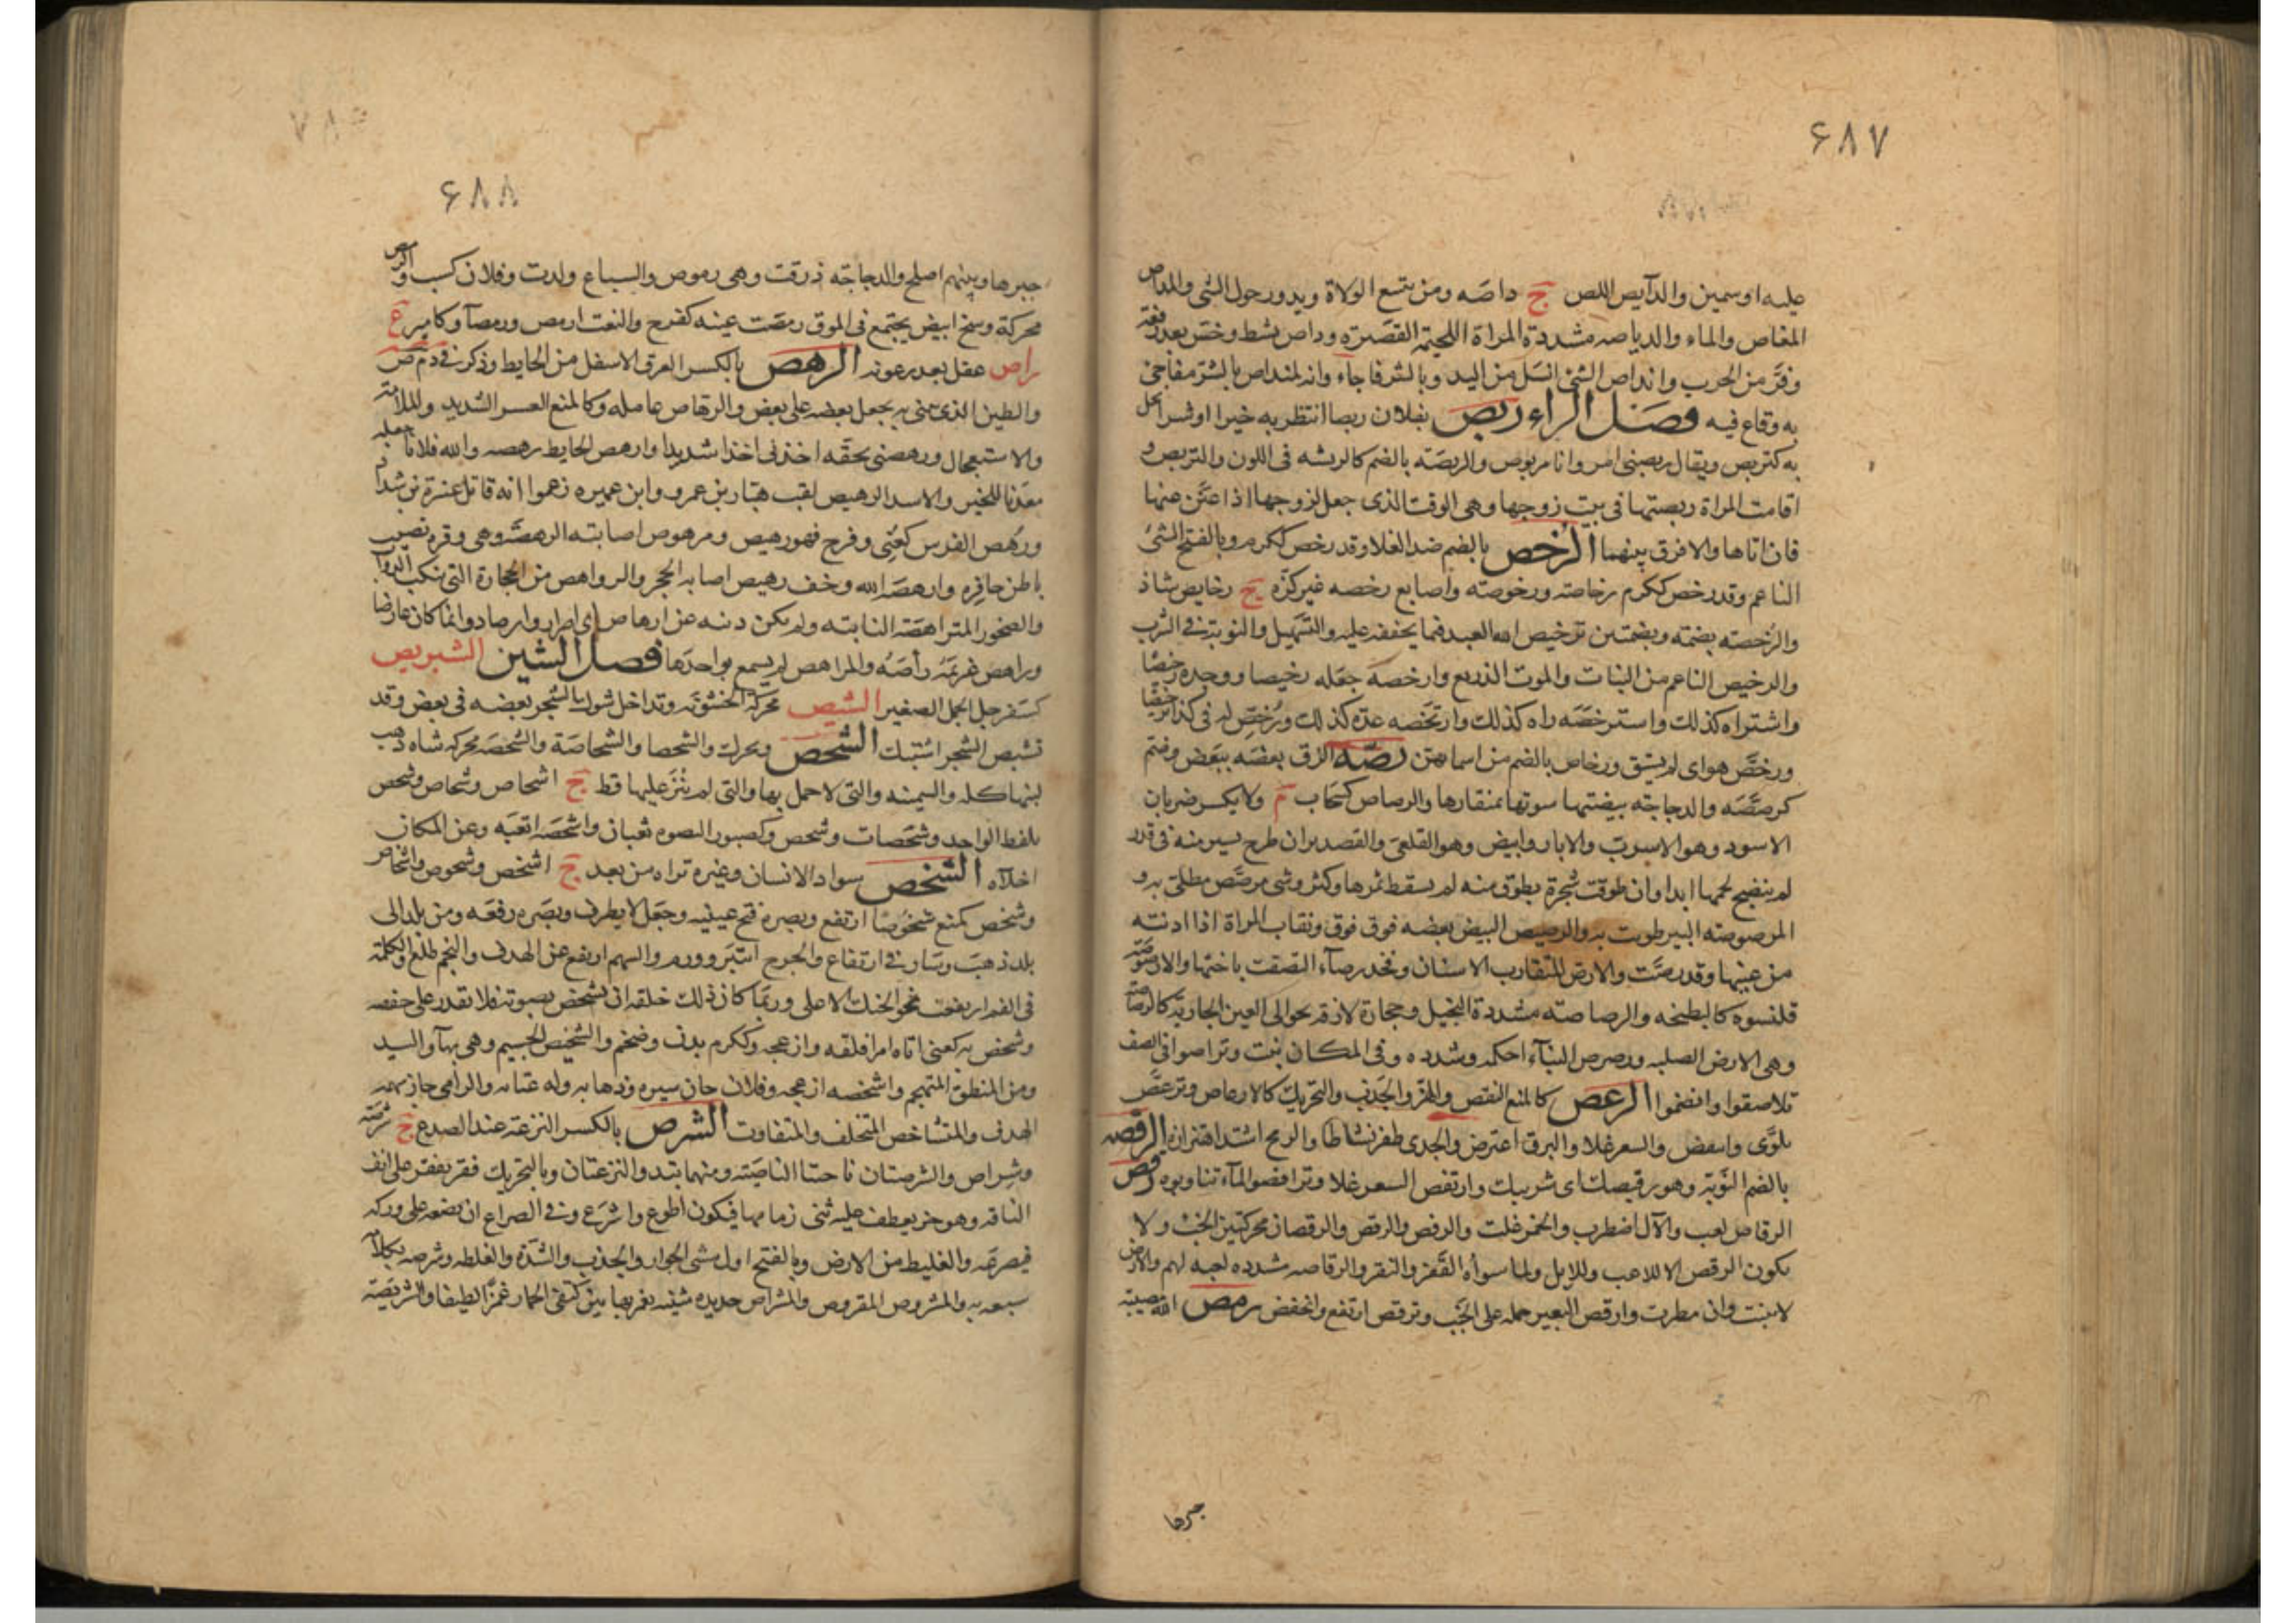 ۶۸۷
عليه او سمين والدآيص اللص ج داصَه ومن يتبع الولاة ويدور حول الشئ والمداص
المغاص والماء والدياصه مشددة المراة اللحيمة القصيرة وداص نشط وخس بعد رفعة
وفرّ من الحرب وانداص الشئ انسل من اليد وبالشر فاجاء وانه لمنداص بالشر مفاجئ
به وقاع فيه فصل الراء ربص بفلان ربصا انتظر به خيرا او شرا يحل
به كتربص ويقال ربصنى امر وانا مربوص والربصه بالضم كالربشه فى اللون والتربص و
اقامت المراة ربصتها فى بيت زوجها وهى الوقت الذى جعل لزوجها اذا عنّن عنها
فان اتاها والا فرق بينهما الرخص بالضم ضد الغلا وقد رخص ككرم وبالفتح الشئ
الناعم وقد رخص ككرم رخاصة ورخوصته واصابع رخصه غير كزّه ج رخايص شاذ
والرُخصته بضمته وبضمتين ترخيص الله العبد فيما يخففه عليه والتسهيل والنوبة فى الشرب
والرخيص الناعم من النبات والموت الذريع وارخصه جعله رخيصا ووجده رخيصًا
واشتراه كذلك واسترخصَه راه كذلك وارتخصه عدّه كذلك ورُخّص له فى كذا ترخيصًا
ورخص هواى لم يشق ورخاص بالضم من اسماهن رصّه الزق بعضه ببعض وضم
كرصّصَه والدجاجة بيضتها سوتها بمنقارها والرصاص كسحاب م ولا يكسر ضربان
الاسود وهو الاسرب والابار وابيض وهو القلعى والقصدير ان طرح يسير منه فى قدر
لم ينضج لحمها ابدا وان طوقت شجرة بطوق منه لم يسقط ثمرها وكثر وشى مرصّص مطلى به و
المرصوصته البير طويت به والرصيص البيض بعضه فوق فوق ونقاب المراة اذا ادنته
من عينها وقد رصّت والارص المتقارب الاسنان وفخذ رصآء التصقت باختها والارصوصة
قلنسوه كالبطيخه والرصاصته مشددة البخيل وحجارة لازقه بحوالى العين الجارية كالرصاصة
وهى الارض الصلبه ورصرص البنآء احكمه وشدده وفى المكان ثبت وتراصوا فى الصف
تلاصقوا وانضموا الرعص كالمنع النفض والهز والجذب والتحريك كالارعاص وترعص
تلوّى وانتفض والسعر غلا والبرق اعترض والجدى طفر نشاطا والرمح اشتد اهتزازه الرفصه
بالضم النَوبة وهو رفيصك اى شريبك وارتفص السعر غلا وترافصوا المآء تناوبوه رقص
الرقاص لعب والآل اضطرب والخمر غلت والرقص والرقص والرقصان محركتين الخبب ولا
يكون الرقص الا للاعب وللابل ولما سواه القفز والنقز والرقاصه مشدده لعبه لهم والارض
لا تنبت وان مطرت وارقص البعير حمله على الخَبب وترقص ارتفع وانخفض رمص الله مصيبته
جبرها
۶۸۸
جبرها وبينهم اصلح والدجاجة ذرقت وهى رموص والسباع ولدت وفلان كسب والرمص
محركة وسخ ابيض يجتمع فى الموق رمصت عينه كفرح والنعت ارمص ورمصآ وكامير ع
راص عقل بعد رعونه الرهص بالكسر العرق الاسفل من الحايط وذكر فى د م ص
والطين الذى يبنى به يجعل بعضه على بعض والرهاص عامله وكالمنع العسر الشديد والملامة
والاستعجال ورهصنى بحقه اخذنى اخذا شديدا وارهص الحايط رهصه والله فلانا جعله
معدنا للخير والاسد الرهيص لقب هبّار بن عمرو وابن عميره زعموا انه قاتل عنترة بن شداد
ورُهص الفرس كعُنى وفرح فهو رهيص ومرهوص اصابته الرهصة وهى وقرة تصيب
باطن حافره وارهصه الله وخف رهيص اصابه الحجر والرواهص من الحجارة التى تنكب الدوآب
والصخور المتراهصة الثابته ولم يكن ذنبه عن ارهاص اى اصرار وارصاد وانما كان عارضا
وراهص غريمَه راصّه والمراهص لم يسمع بواحدها فصل الشين الشبريص
كسفرجل الجمل الصغير الشبص محركة الخشونة وتداخل شوك الشجر بعضه فى بعض وقد
تشبص الشجر اشتبك الشحص ويحرك والشحصا والشحاصة والشحصة محركه شاه ذهب
لبنها كله والسمينه والتى لا حمل بها والتى لم ينز عليها قط ج اشحاص وشحاص وشحص
بلفظ الواحد وشحصات وشحص وكصبور النضوه تعبان واشحصه اتعبَه وعن المكان
اجلآه الشخص سواد الانسان وغيره تراه من بعد ج اشخص وشخوص واشخاص
وشخص كمنع شخُوصًا ارتفع وبصره فتح عينيه وجعل لا يطرف وبصَره رفعَه ومن بلد الى
بلد ذهبَ وسَار فى ارتفاع والجرح انتبر وورم والسهم ارتفع عن الهدف والنجم طلع والكلمة
فى الفم ارتفعت نحو الحنك الاعلى وربّما كان ذلك خلقه ان يشخص بصوته فلا يقدر على خفضه
وشخص به كعنى اتاه امر اقلقه وازعجه وككرم بدن وضخم والشخيص الجسيم وهى بهآ والسيد
ومن المنطق المتهجم واشخصه ازعجه وفلان حان سيره وذهابه وله عتابه والرامى جاز سهمه
الهدف والمتشاخص المتخلف والمتفاوت الشرص بالكسر النزعة عند الصدغ ج شرصَة
وشراص والشرصتان ناحيتا الناصيَة ومنهما تبتدو النزعتان وبالتحريك فقر يفقر على انف
الناقه وهو حز يعطف عليه ثنى زمامها فيكون اطوع واسرَع وفى الصراع ان يضعه على وركه
فيصرعَه والغليظ من الارض وبالفتح اول مشى الحوار والجذب والشدّة والغلظه وشرصه بكلامه
سبعه به والمشروص المقروص والمشراص حديده شينه يغمز بها بين كتفى الحمار غمزًا لطيفا والشريصة